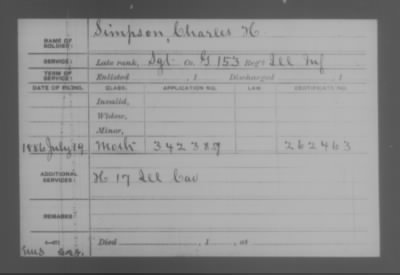 NAME OF SOLDIER: Simpson, Charles H.
SERVICE: Late rank, Sgt Co. G 153 Reg't Ill Inf
TERM OF SERVICE: Enlisted , 1 Discharged , 1
DATE OF FILING. CLASS. APPLICATION NO. LAW. CERTIFICATE NO.
Invalid,
Widow,
Minor,
1886 July 19 Moth 342389 262463
ADDITIONAL SERVICES: H 17 Ill Cav
REMARKS:
Died , 1 , at